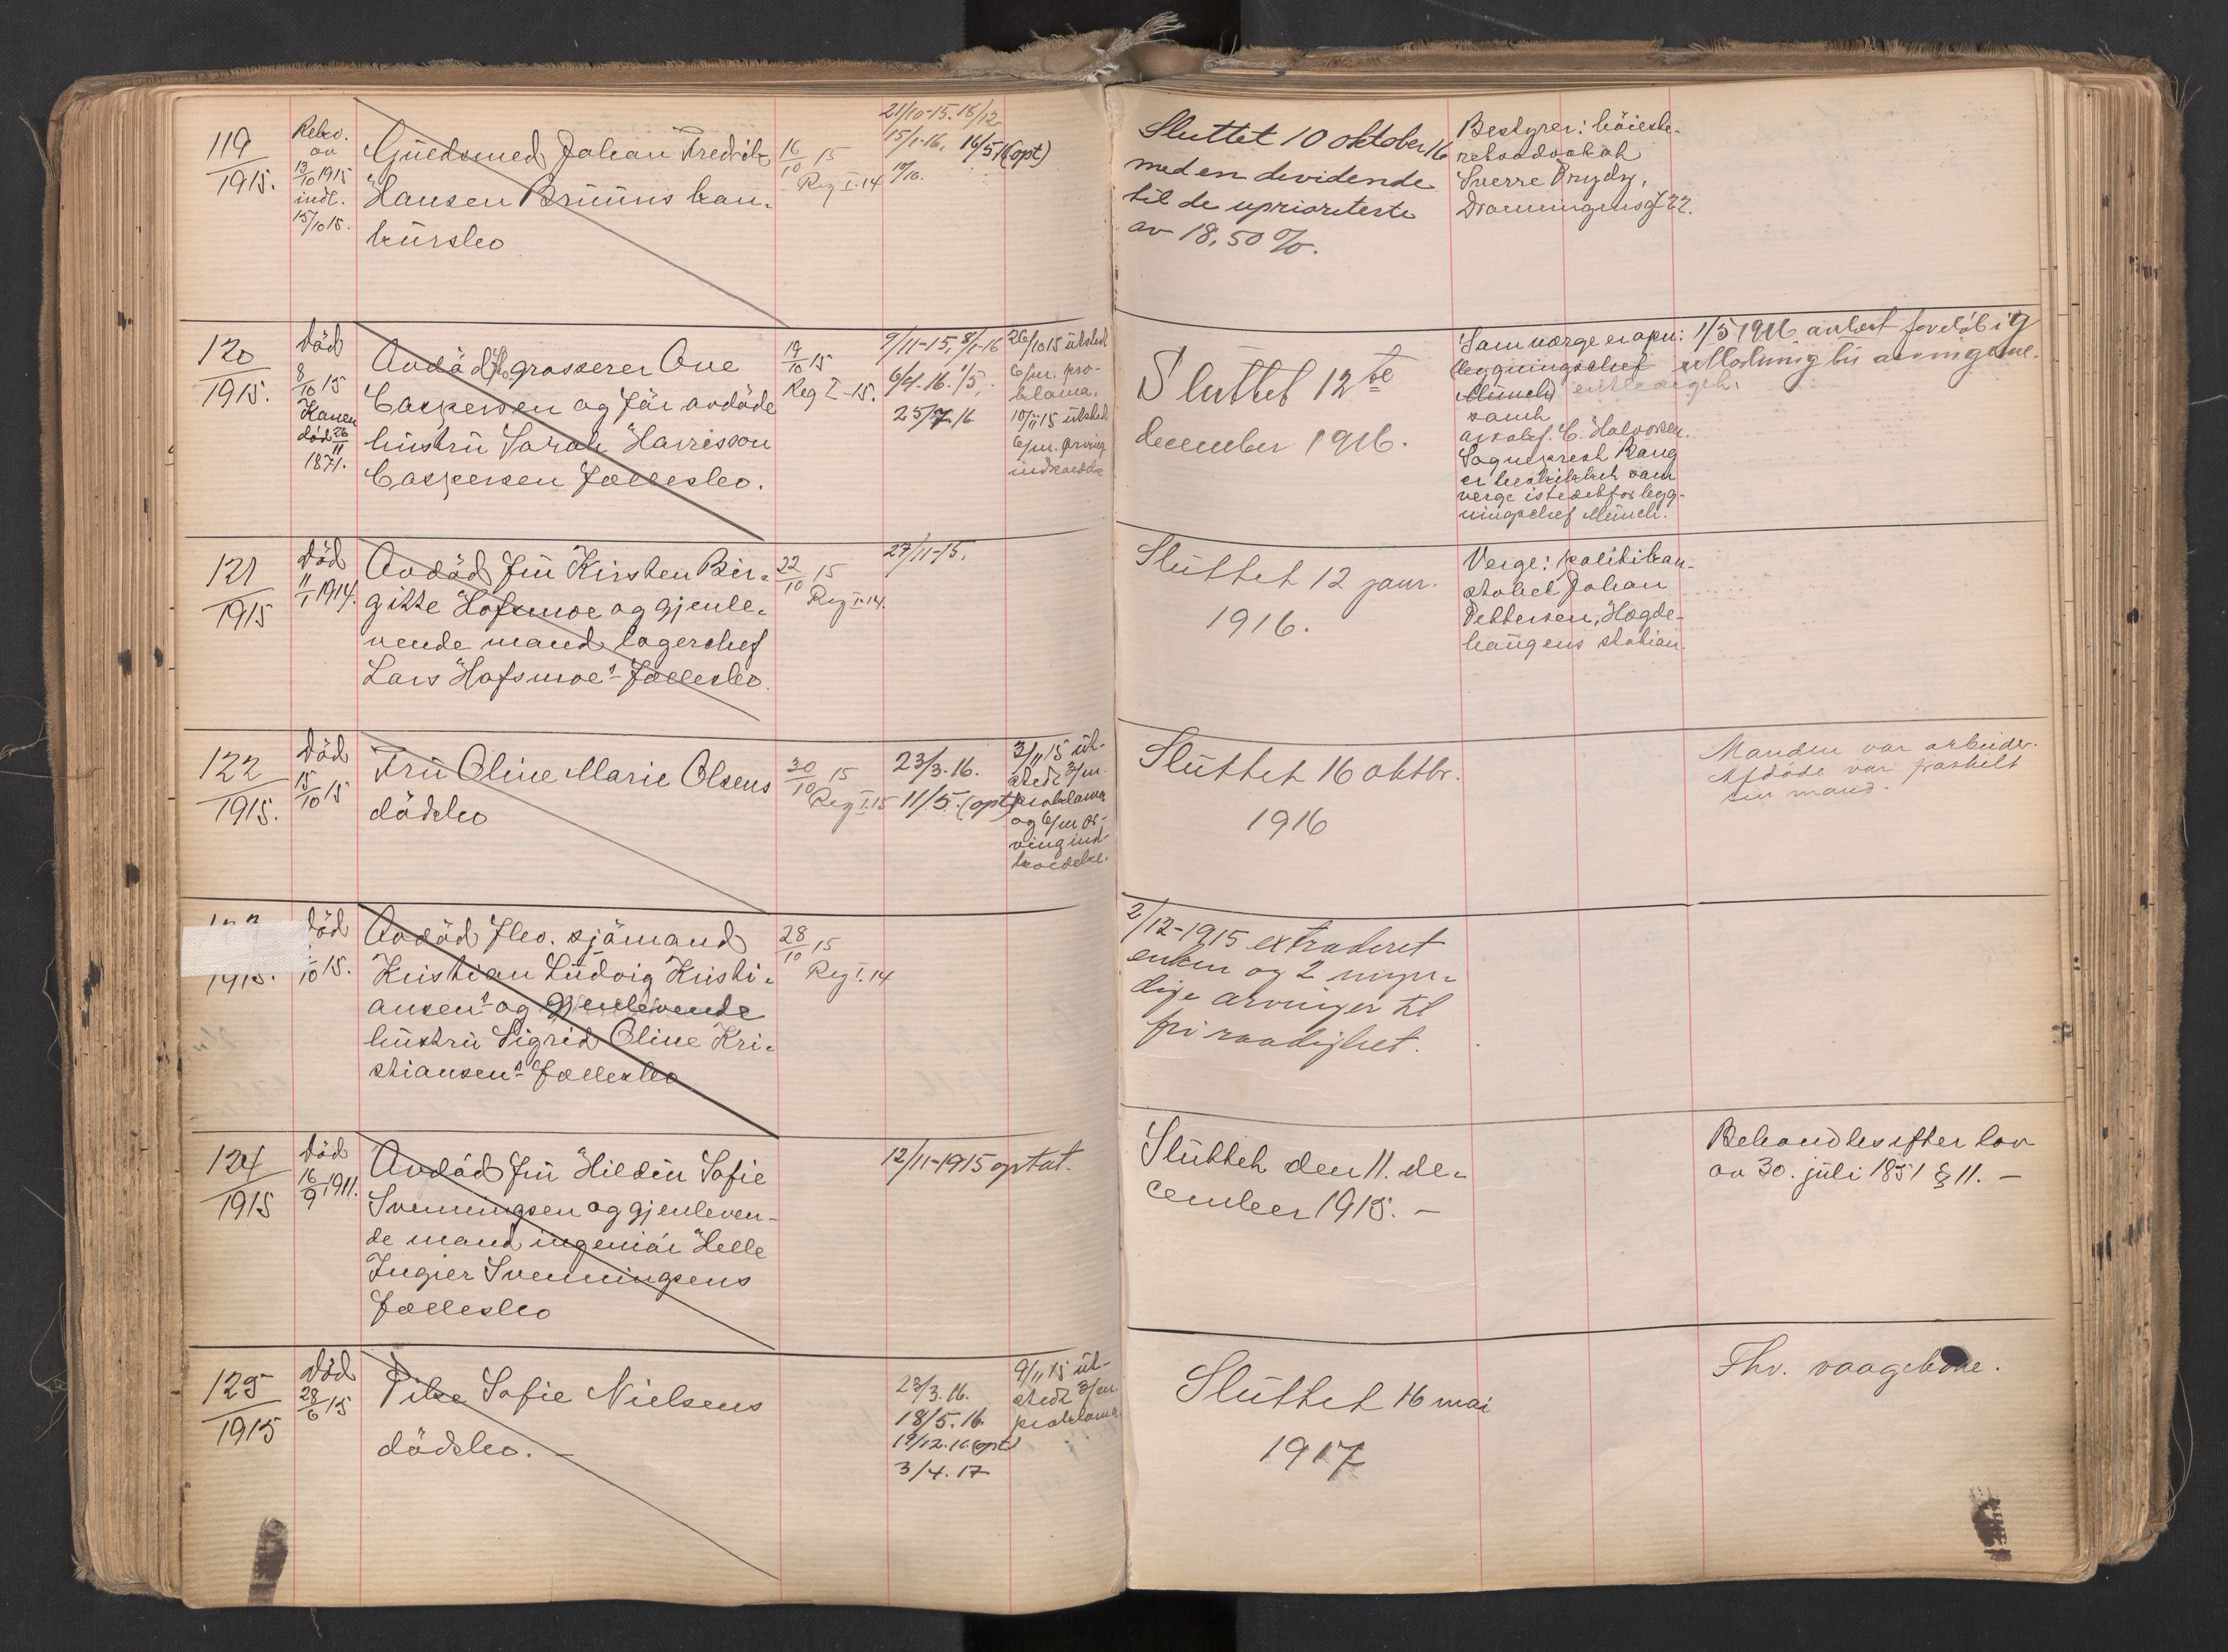 119
1915.
Rekv.
av
13/10 1915
indl.
15/10 15.
Guldsmed Johan Fredrik
Hansen Bruuns kon-
kursbo
16/10 15
Reg I. 14
21/10-15. 18/12
15/1-16. 16/5 16 (opt)
Sluttet 10 oktober 16
med en dividende
til de uprioriterte
av 18,50 %.
Bestyrer: höieste-
retsadvokat
Sverre
Dronningensg 22.
120
1915.
Död
8/10 15
Konen
död 26/11
1871.
Avdöd grosserer Ove
Caspersen og för avdöde
hustru Sarah Harrisson
Caspersen fællesbo.
19/10 15
Reg I-15.
9/11-15, 8/1-16
6/4.16. 1/5.
25/7.16
26/10 15 utstedt
6/m. pro-
klama,
10/11 15 utstedt
6/m. arving
indkaldelse
Sluttet 12te
december 1916.
Som værge er opn:
leggningschef
Münch
samt
C. Halvorsen.
Sogneprest Rang
er beskikket som
verge istedetfor legg-
ningschef Münch.
1/5 1916 avholdt foreløbig
utlodning til arvingerne.
121
1915
Död
11/1 1914.
Avdöd fru Kirsten Bir-
gitte Hofsmoe og gjenle-
vende mand lagerchef
Lars Hofsmoe's fællesbo.
22/10 15
Reg I. 14.
27/11-15.
Sluttet 12 janr.
1916.
Verge: politikon-
stabel Johan
Pettersen, Hegde-
haugens station.
122
1915.
Död
15/10 15
Fru Oline Marie Olsens
dödsbo
30/10 15
Reg I. 15
23/3. 16.
11/5. (opt)
3/11 15 ut-
stedt 3/m.
proklama
og 6/m ar-
ving ind-
kaldelse.
Sluttet 16 oktbr.
1916
Manden var arbeider.
Afdøde var fraskilt
sin mand.
1915.
Död
10 15.
Avdöd fhv. sjömand
Kristian Ludvig Kristi-
ansen's og gjenlevende
hustru Sigrid Oline Kri-
stiansen's fællesbo
28/10 15
Reg I. 14
2/12-1915 extraderet
enken og 2 myn-
dige arvinger til
fri raadighet.
124
1915
Död
16/9 1911.
Avdöd fru Hildur Sofie
Svenningsen og gjenleven-
de mand ingeniör Helle
Ingier Svenningsens
fællesbo
12/11-1915 optat.
Sluttet den 11. de-
cember 1915. –
Behandles efter lov
av 30. juli 1851 § 11. –
125
1915
Död
28/6 15
Pike Sofie Nielsens
dödsbo. –
23/3. 16.
18/5. 16.
19/12. 16 (opt)
3/4. 17
9/11 15 ut-
stedt 3/m.
proklama.
Sluttet 16 mai
1917
Fhv. vaagekone.